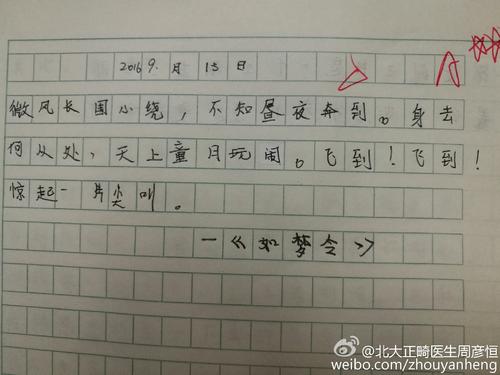 2016 9. 月 15 日
微风长围小绕，不知昼夜奔到。身去
何从处，天上童月玩闹。飞到！飞到！
惊起一片尖叫。
—《如梦令》
@北大正畸医生周彦恒
weibo.com/zhouyanheng